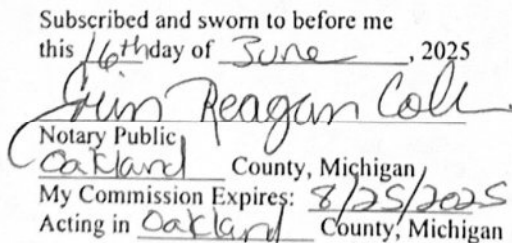 Subscribed and sworn to before me
this 16th day of June, 2025
Erin Reagan Cole
Notary Public
Oakland County, Michigan
My Commission Expires: 8/25/2025
Acting in Oakland County, Michigan